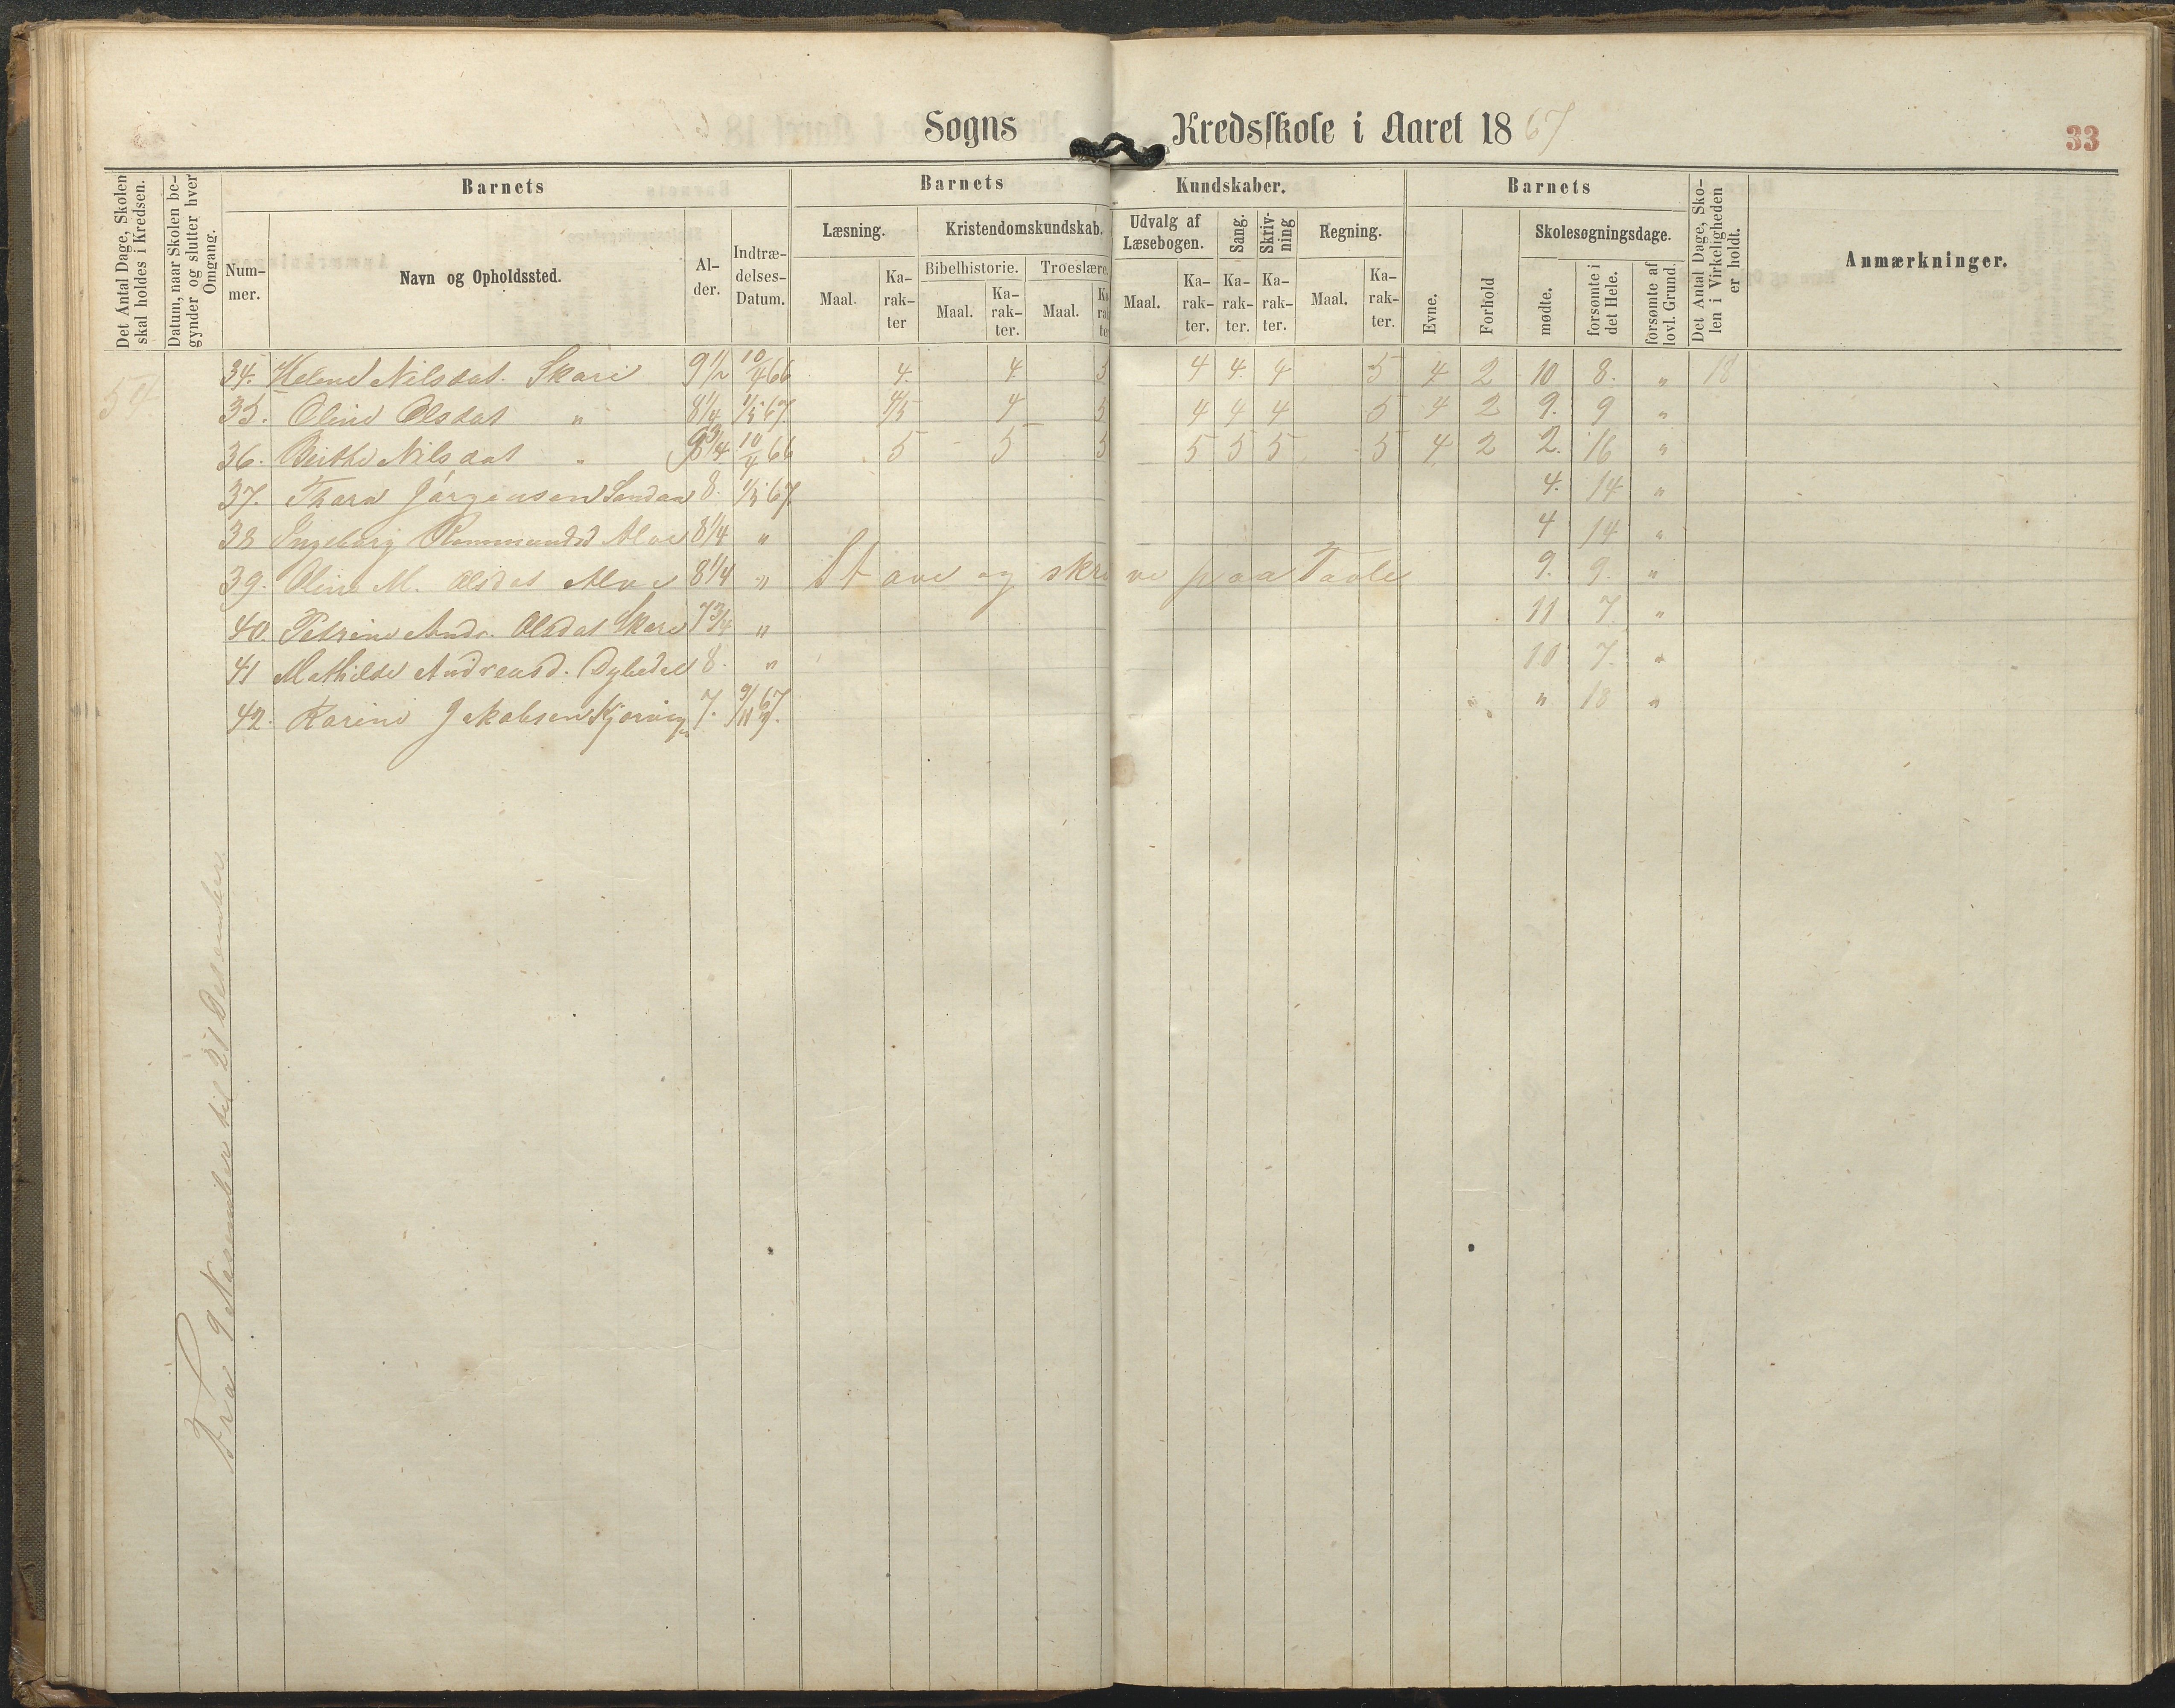 Sogns Kredsskole i Aaret 1867
33
Det Antal Dage, Skolen skal holdes i Kredsen.
Datum, naar Skolen begynder og slutter hver Omgang.
Barnets
Nummer.
Navn og Opholdssted.
Alder.
Indtrædelses-Datum.
Barnets Kundskaber.
Læsning.
Maal.
Karakter
Kristendomskundskab.
Bibelhistorie.
Maal.
Karakter.
Troeslære.
Maal.
Udvalg af Læsebogen.
Maal.
Karakter.
Sang.
Karakter.
Skrivning
Karakter.
Regning.
Maal.
Karakter.
Barnets
Evne.
Forhold
Skolesøgningsdage.
mødte.
forsømte i det Hele.
forsømte af lovl. Grund.
Det Antal Dage, Skolen i Virkeligheden er holdt.
Anmærkninger.
54
34. Helene Nilsdat. Skare 9 1/2 10/4 66 4. 4. 5 4 4. 4 5 4 2 10 8. " 18
35. Oline Olsdat " 8 1/4 1/5 67. 4/5 4 5 4 4 4 5 4 2 9. 9 "
36. Berthe Nilsdat " 9 3/4 10/4 66 5 5 5 5 5 5 5 4 2 2. 16 "
37. Thara Jørgensen Sandaa 8. 1/5 67. 4. 14 "
38 Ingeborg Rommundsd Alve 8 1/4 " 4 14 "
39. Oline M. Olsdat Alve 8 1/4 " Stave og skrive paa Tavle 9. 9. "
40. Petrine Andr. Olsdat Skare 7 3/4 " 11 7. "
41 Mathilde Andreasd. Dybedal 8. " 10 7. "
42. Karine Jakobsen Kjørvig 7. 9/11 67. " 18 "
Fra 9 November til 21 Desember.